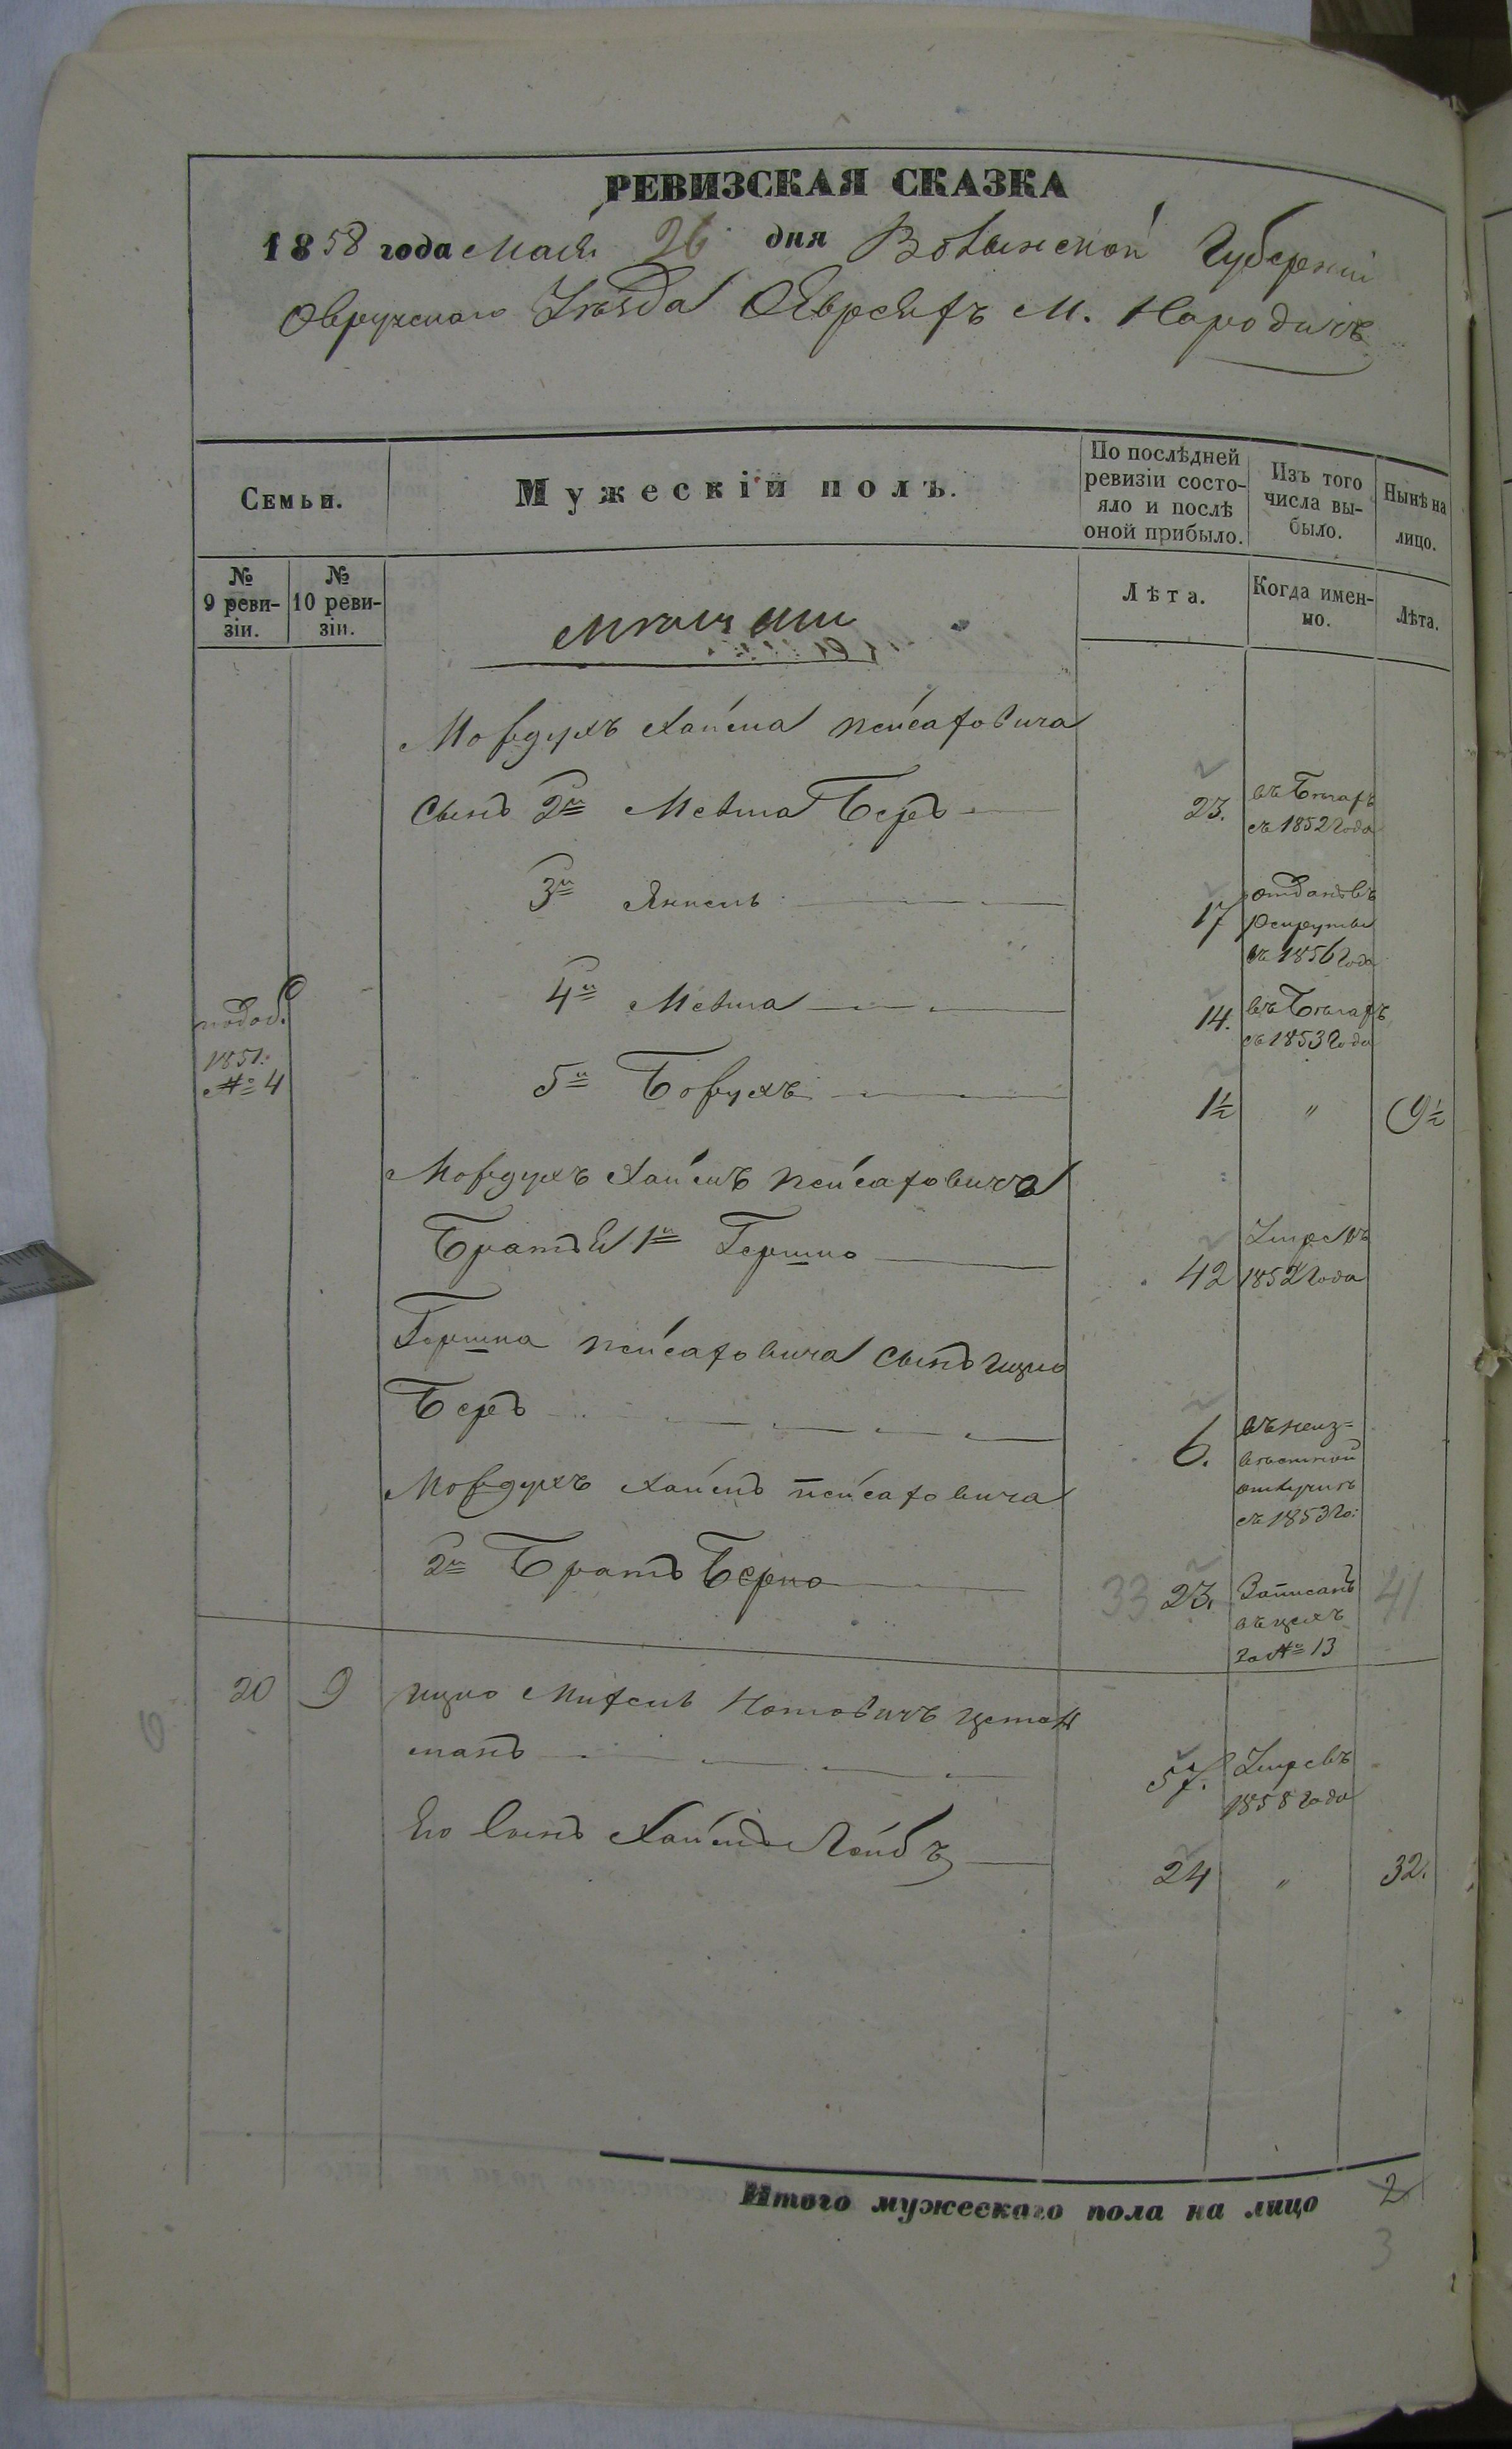 РЕВИЗСКАЯ СКАЗКА
1858 года Мая 26 дня Волынской Губерніи
Овручскаго Уѣзда Евреяхъ М. Народичъ
Семьи.
Мужескій полъ.
По послѣдней
ревизіи состо-
яло и послѣ
оной прибыло.
Изъ того
числа вы-
было.
Нынѣ на
лицо.
№
9 реви-
зіи.
№
10 реви-
зіи.
Мѣщане
Лѣта.
Когда имен-
но.
Лѣта.
Мордухъ Хаима Пейсаховича
Сынъ 2й Меьша Беръ 23. въ Бѣгахъ
съ 1852 года
3й Янкель 17 отданъ въ
Рекруты
въ 1856 года
4й 14. въ Бѣгахъ
съ 1853 года
1851.
№ 4
5й Борухъ 1½ " 9½
Мордухъ Хаимъ Пейсаховича
Братья 1й Гершко 42 Умре въ
1852 года
Гершка Пейсаховича Сынъ Ицко
Беръ 6. въ неиз=
вѣстной
отлучкѣ
съ 1853 го:
Мордухъ Хаимъ Пейсаховича
2й Братъ Берко 33 23. Записанъ 41
за № 13
20 9 Ицко Михель Нотовичъ
манъ 57. Умре въ
1858 года
Его Сынъ Хаимъ Лейбъ 24 " 32.
Итого мужескаго пола на лицо 2
3
6